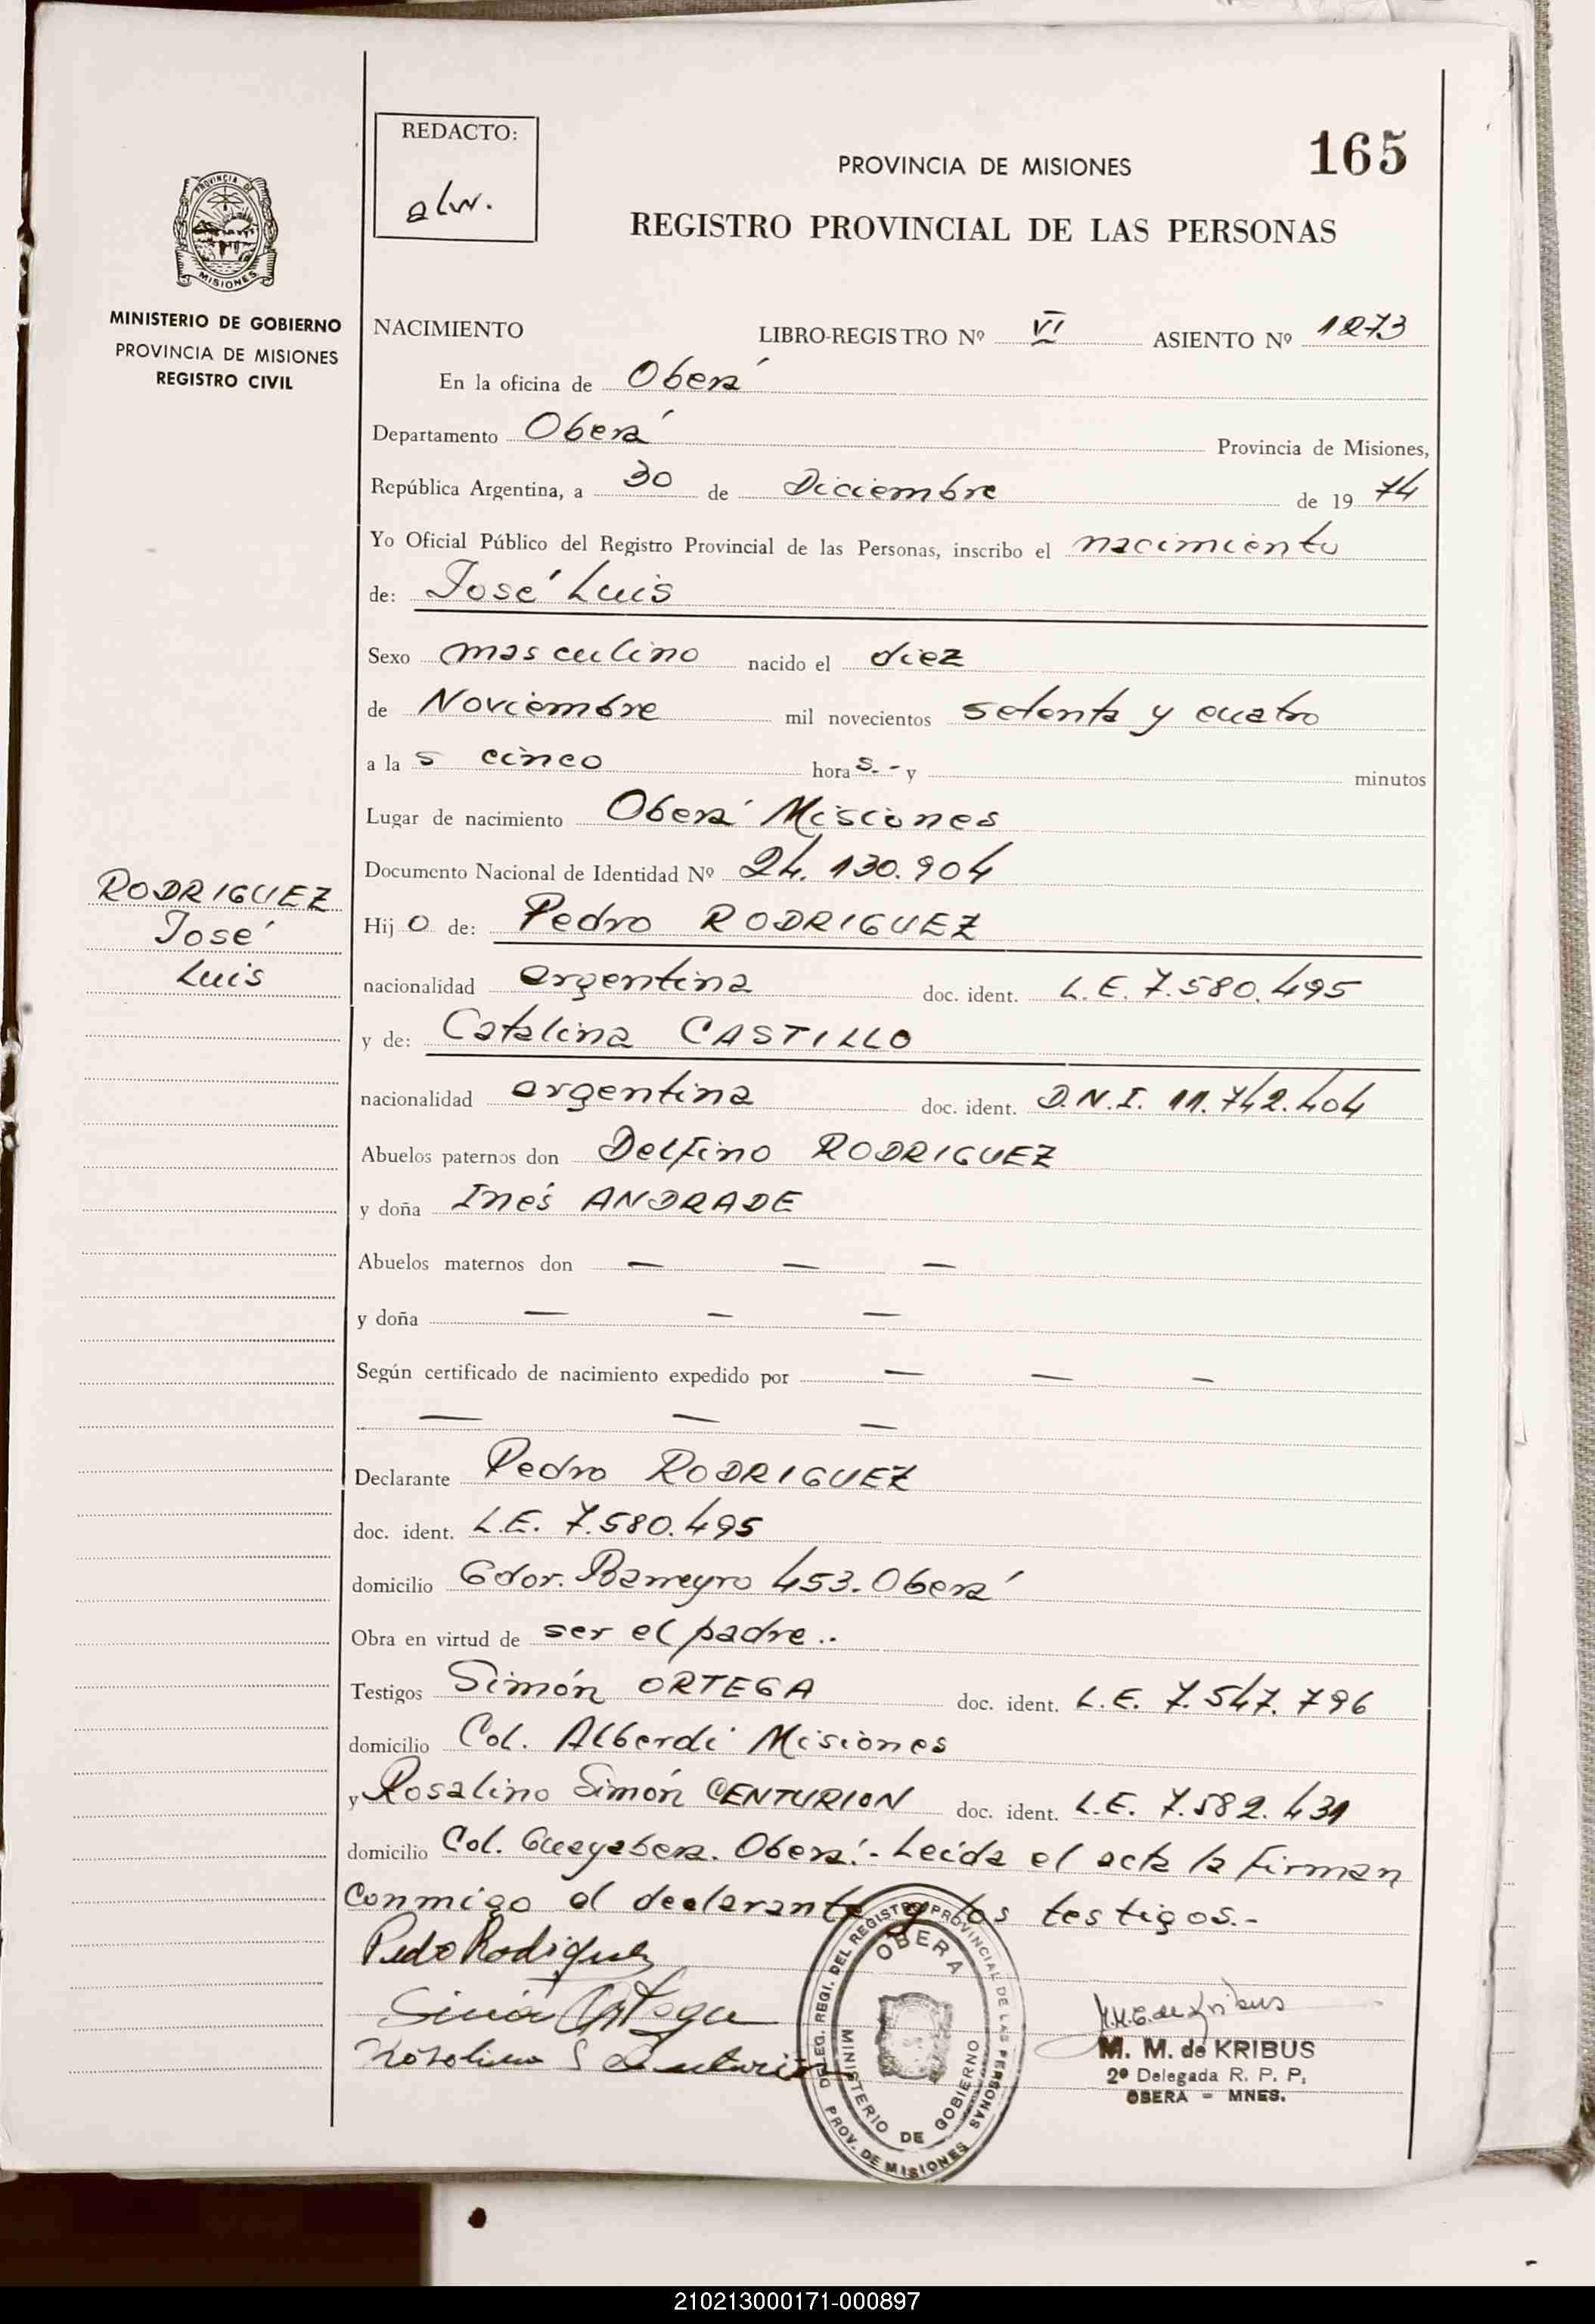 REDACTO:
alw.
165
PROVINCIA DE MISIONES
REGISTRO PROVINCIAL DE LAS PERSONAS
PROVINCIA DE
MISIONES
MINISTERIO DE GOBIERNO
PROVINCIA DE MISIONES
REGISTRO CIVIL
NACIMIENTO LIBRO-REGISTRO Nº VI ASIENTO Nº 1273
En la oficina de Oberá
Departamento Oberá Provincia de Misiones,
República Argentina, a 30 de Diciembre de 19 74
Yo Oficial Público del Registro Provincial de las Personas, inscribo el nacimiento
de: José Luis
Sexo masculino nacido el diez
de Noviembre mil novecientos setenta y cuatro
a la s cinco hora s.- y minutos
Lugar de nacimiento Oberá Misiones
Documento Nacional de Identidad Nº 24.130.904
RODRIGUEZ
José
Luis
Hij o de: Pedro RODRIGUEZ
nacionalidad argentina doc. ident. L.E. 7.580.495
y de: Catalina CASTILLO
nacionalidad argentina doc. ident. D.N.I. 11.742.404
Abuelos paternos don Delfino RODRIGUEZ
y doña Inés ANDRADE
Abuelos maternos don — — —
y doña — — —
Según certificado de nacimiento expedido por — — —
— — —
Declarante Pedro RODRIGUEZ
doc. ident. L.E. 7.580.495
domicilio Gdor. Barreyro 453. Oberá
Obra en virtud de ser el padre..
Testigos Simón ORTEGA doc. ident. L.E. 7.547.796
domicilio Col. Alberdi Misiones
y Rosalino Simón CENTURION doc. ident. L.E. 7.582.431
domicilio Col. Guayabera. Oberá.- Leída el acta la firman
conmigo el declarante y los testigos.-
Pedro Rodriguez
Simón Ortega
Rosalino S Centurión
DELEG. REGI. DEL REGISTRO PROVINCIAL DE LAS PERSONAS
OBERA
MINISTERIO DE GOBIERNO
PROV. DE MISIONES
M.M.C. de Kribus
M. M. de KRIBUS
2º Delegada R. P. P.
OBERA - MNES.
210213000171-000897